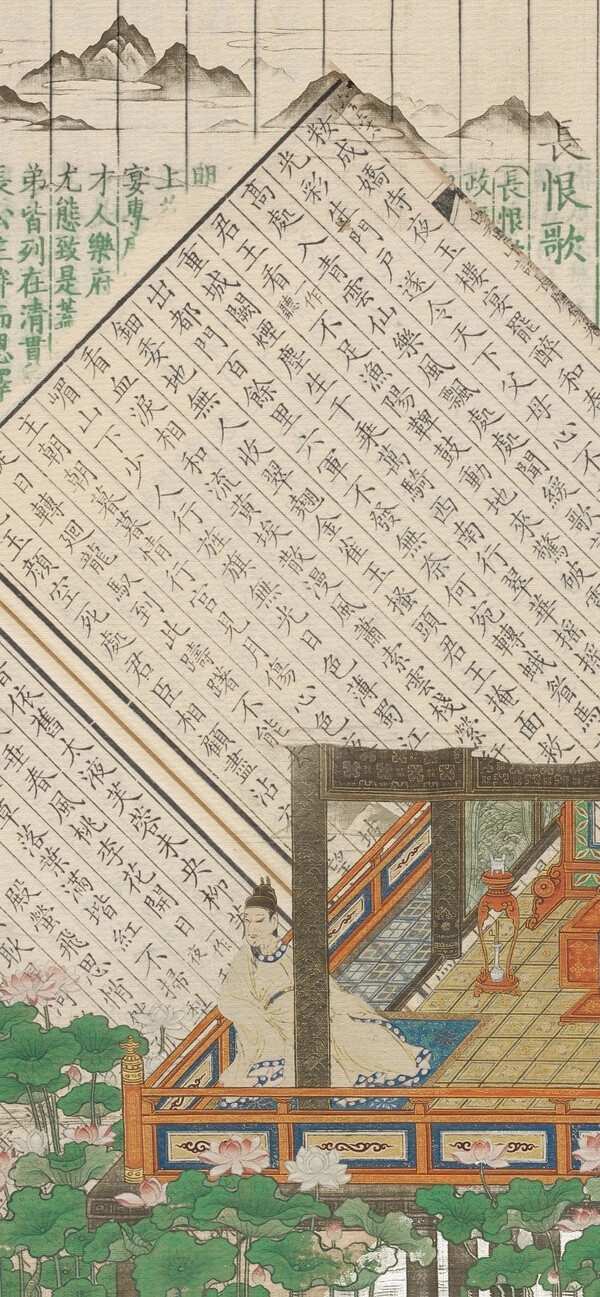 長恨歌
長恨
政
明
上
宴專
才人樂府
尤態致是蓋
弟皆列在清貫
長公主
妝成嬌侍夜玉樓宴罷醉和春
光彩生門戶遂令天下父母心不
高處入青雲仙樂風飄處處聞緩歌
君王看一作聽不足漁陽鞞鼓動地來驚破霓
重城闕煙塵生千乘萬騎西南行翠華搖搖
出都門百餘里六軍不發無奈何宛轉蛾眉馬
鈿委地無人收翠翹金雀玉搔頭君王掩面救
看血淚相和流黃埃散漫風蕭索雲棧縈紆
嵋山下少人行旌旗無光日色薄蜀江
主朝朝暮暮情行宮見月傷心色夜
旋日轉迴龍馭到此躊躇不能
玉顏空死處君臣相顧盡沾衣 望
依舊太液芙蓉未央柳芙
垂春風桃李花開日夜一作
草落葉滿階紅不掃
殿螢飛思悄然
耿 河